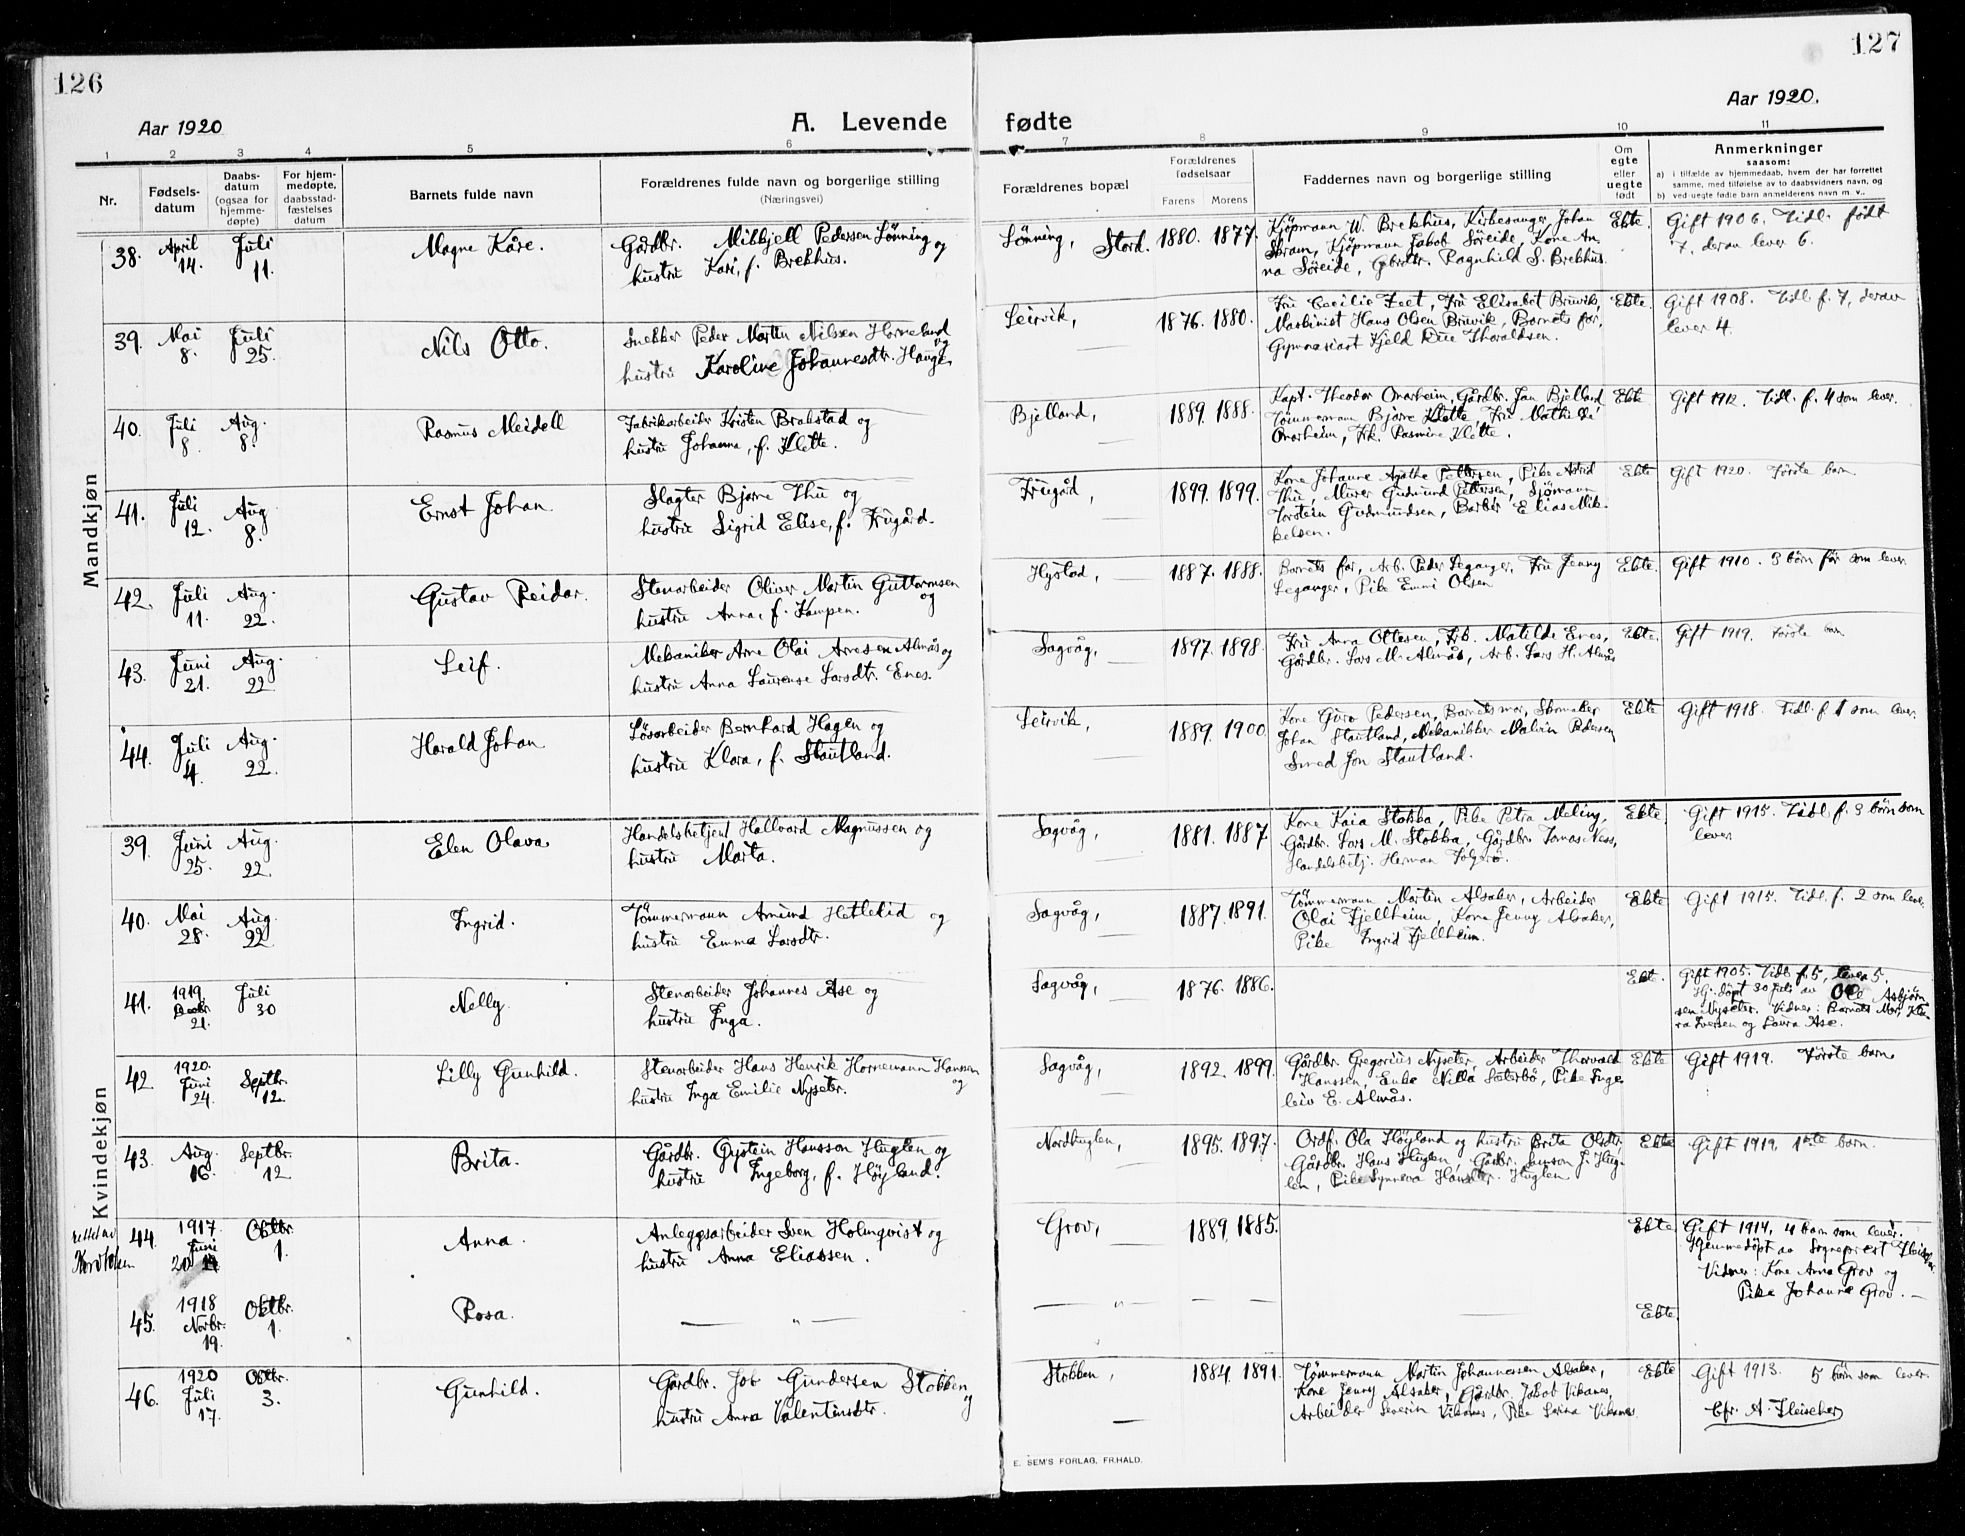 126
127
Aar 1920
A. Levende fødte
Aar 1920.
1 2 3 4 5 6 7 8 9 10 11
Nr.
Fødsels-
datum
Daabs-
datum
(ogsaa for
hjemme-
døpte)
For hjem-
medøpte,
daabsstad-
fæstelses
datum
Barnets fulde navn
Forældrenes fulde navn og borgerlige stilling
(Næringsvei)
Forældrenes bopæl
Forældrenes
fødselsaar
Farens Morens
Faddernes navn og borgerlige stilling
Om
egte
eller
uegte
født
Anmerkninger
saasom:
a) i tilfælde av hjemmedaab, hvem der har forrettet
samme, med tilføielse av to daabsvidners navn, og
b) ved uegte fødte barn anmelderens navn m. v..
Mandkjøn
38. April 14. Juli 11. Magne Kåre.
Gårdbr. Mikkjell Pedersen Lønning og
hustru Kari, f. Brekhus.
Lønning, Stord. 1880. 1877.
Kjöpmann W. Brekhus, Kirkesanger Johan
Skram, Kjöpmann Jakob Söreide, Kone An-
na Söreide, Gbrdtr. Ragnhild S. Brekhus.
Ekte.
Gift 1906. Tidl. født
7, derav lever 6.
39. Mai 8. Juli 25. Nils Otto.
Snekker Peder Martin Nilsen Horneland og
hustru Karoline Johannesdtr. Hauge.
Leirvik, 1876. 1880.
Fru Cecilie Feet, Fru Elisabet Bruvik,
Maskinist Hans Olsen Bruvik, Barnets far,
Gymnasiast Kjeld Due Thoraldsen.
Ekte.
Gift 1908. Tidl. f. 7, derav
lever 4.
40. Juli 8. Aug. 8. Rasmus Meidell
Fabrikarbeider Kristen Brakstad og
hustru Johanna, f. Klette.
Bjelland, 1889. 1888.
Kapt. Theodor Onarheim, Gårdbr. Jan Bjelland,
Tömmermann Bjarne Klette, Fru Mathilde
Onarheim, Frk. Rasmine Klette.
Ekte
Gift 1912. Tidl. f. 4 som lever.
41. Juli 12. Aug 8. Ernst Johan
Slagter Bjarne Thu og
hustru Sigrid Elise, f. Frugård.
Frugård, 1899. 1899.
Kone Johanne Agathe Pettersen, Pike Astrid
Thu, Murer Gudmund Pettersen, Sjömann
Torstein Gudmundsen, Barber Elias Mik-
kelsen.
Ekte
Gift 1920. Første barn.
42. Juli 11. Aug. 22. Gustav Reidar.
Stenarbeider Oliver Martin Guttormsen og
hustru Anna, f. Kampen.
Hystad, 1887. 1888.
Barnets far, Arb. Peder Leganger, Fru Jenny
Leganger, Pike Emni Olsen
Ekte.
Gift 1910. 3 børn før som lever
43. Juni 21. Aug. 22. Leif.
Mekaniker Arne Olai Arnesen Almås og
hustru Anna Laurense Larsdtr. Enes.
Sagvåg, 1897. 1898.
Fru Anna Ottesen, Frk. Matilde Enes,
Gårdbr. Lars M. Almås, Arb. Lars H. Almås
Ekte.
Gift 1919. Første barn
44. Juli 4. Aug. 22. Harald Johan.
Løsarbeider Bernhard Hagen og
hustru Klara, f. Stautland.
Leirvik, 1889. 1900.
Kone Guro Pedersen, Barnets mor, Skomaker
Johan Stautland, Mekanikker Malvin Pedersen
Smed Jon Stautland.
Ekte
Gift 1918. Tidl. f. 1 som lever.
Kvindekjøn
39. Juni 25. Aug. 22. Elen Olava
Handelsbetjent Hallvard Magnussen og
hustru Marta.
Sagvåg, 1881. 1887
Kone Kaia Stokka, Pike Petra Meling,
Gårdbr. Lars M. Stokka, Gårdbr. Tomas Ness,
Handelsbetj. Herman
Ekte
Gift 1915. Tidl. f. 3 børn som
lever
40. Mai 28. Aug. 22. Ingrid.
Tömmermann Amund Hetlelid og
hustru Emma Larsdtr.
Sagvåg, 1887. 1891.
Tömmermann Martin Alsaker, Arbeider
Olai Fjellheim, Kone Jenny Alsaker,
Pike Ingrid Fjellheim.
Ekte
Gift 1915. Tidl. f. 2 som lever.
41. 1919. Decbr. 21. Juli 30 Nelly.
Stenarbeider Johannes Åse og
hustru Inga.
Sagvåg, 1876. 1886.
Ekte.
Gift 1905. Tidl. f. 5, lever 5.
Hj. døpt 30 juli av Ole Asbjørn-
sen Nyseter. Vidner: Barnets Mor, Kla-
ra Iversen og Laura Åse.
42. 1920. Juni 24. Septbr. 12. Lilly Gunhild.
Stenarbeider Hans Henrik Hornemann Hanssen og
hustru Inga Emilie Nyseter.
Sagvåg, 1892. 1899.
Gårdbr. Gregorius Nyseter, Arbeider Thorvald
Hanssen, Enke Nilla Sæterbö, Pike Inge-
leiv E. Almås.
Ekte
Gift 1919. Første barn
43. Aug. 16. Septbr. 12 Brita.
Gårdbr. Øystein Hansson Huglen og
hustru Ingeborg, f. Høyland.
Nordhuglen, 1895. 1897.
Ordf. Ola Høyland og hustru Brita Olsdtr,
Gårdbr. Hans Huglen, Gårdbr. Samson J. Hug-
len, Pike Synneva Hansdtr. Huglen
Ekte
Gift 1919. 1ste barn.
rettet av
44. 1917. Juni 20 Oktbr. 1. Anna.
Anleggsarbeider Sven Holmqvist og
hustru Anna Eliassen.
Grov, 1889. 1885.
Ekte
Gift 1914, 4 barn som lever.
Hjemmedøpt av Sogneprest Fleischer.
Vidner: Kone Anna Grov og
Pike Johanne Grov. —
45. 1918 Novbr. 19. Oktbr. 1. Rosa.
— " —
— " — — —
—
Ekte
46. 1920 Juli 17. Oktbr. 3. Gunhild.
Gårdbr. Job Gundersen Stokken og
hustru Anna Valentinsdtr.
Stokken, 1884. 1891.
Tømmermann Martin Johannessen Alsaker,
Kone Jenny Alsaker, Gårdbr. Jakob Vikanes,
Arbeider Severin Vikanes, Pike Serina Vikanes.
Ekte
Gift 1913. 5 børn som lever.
Cfr. A. Fleischer
E. SEM'S FORLAG, FR.HALD.